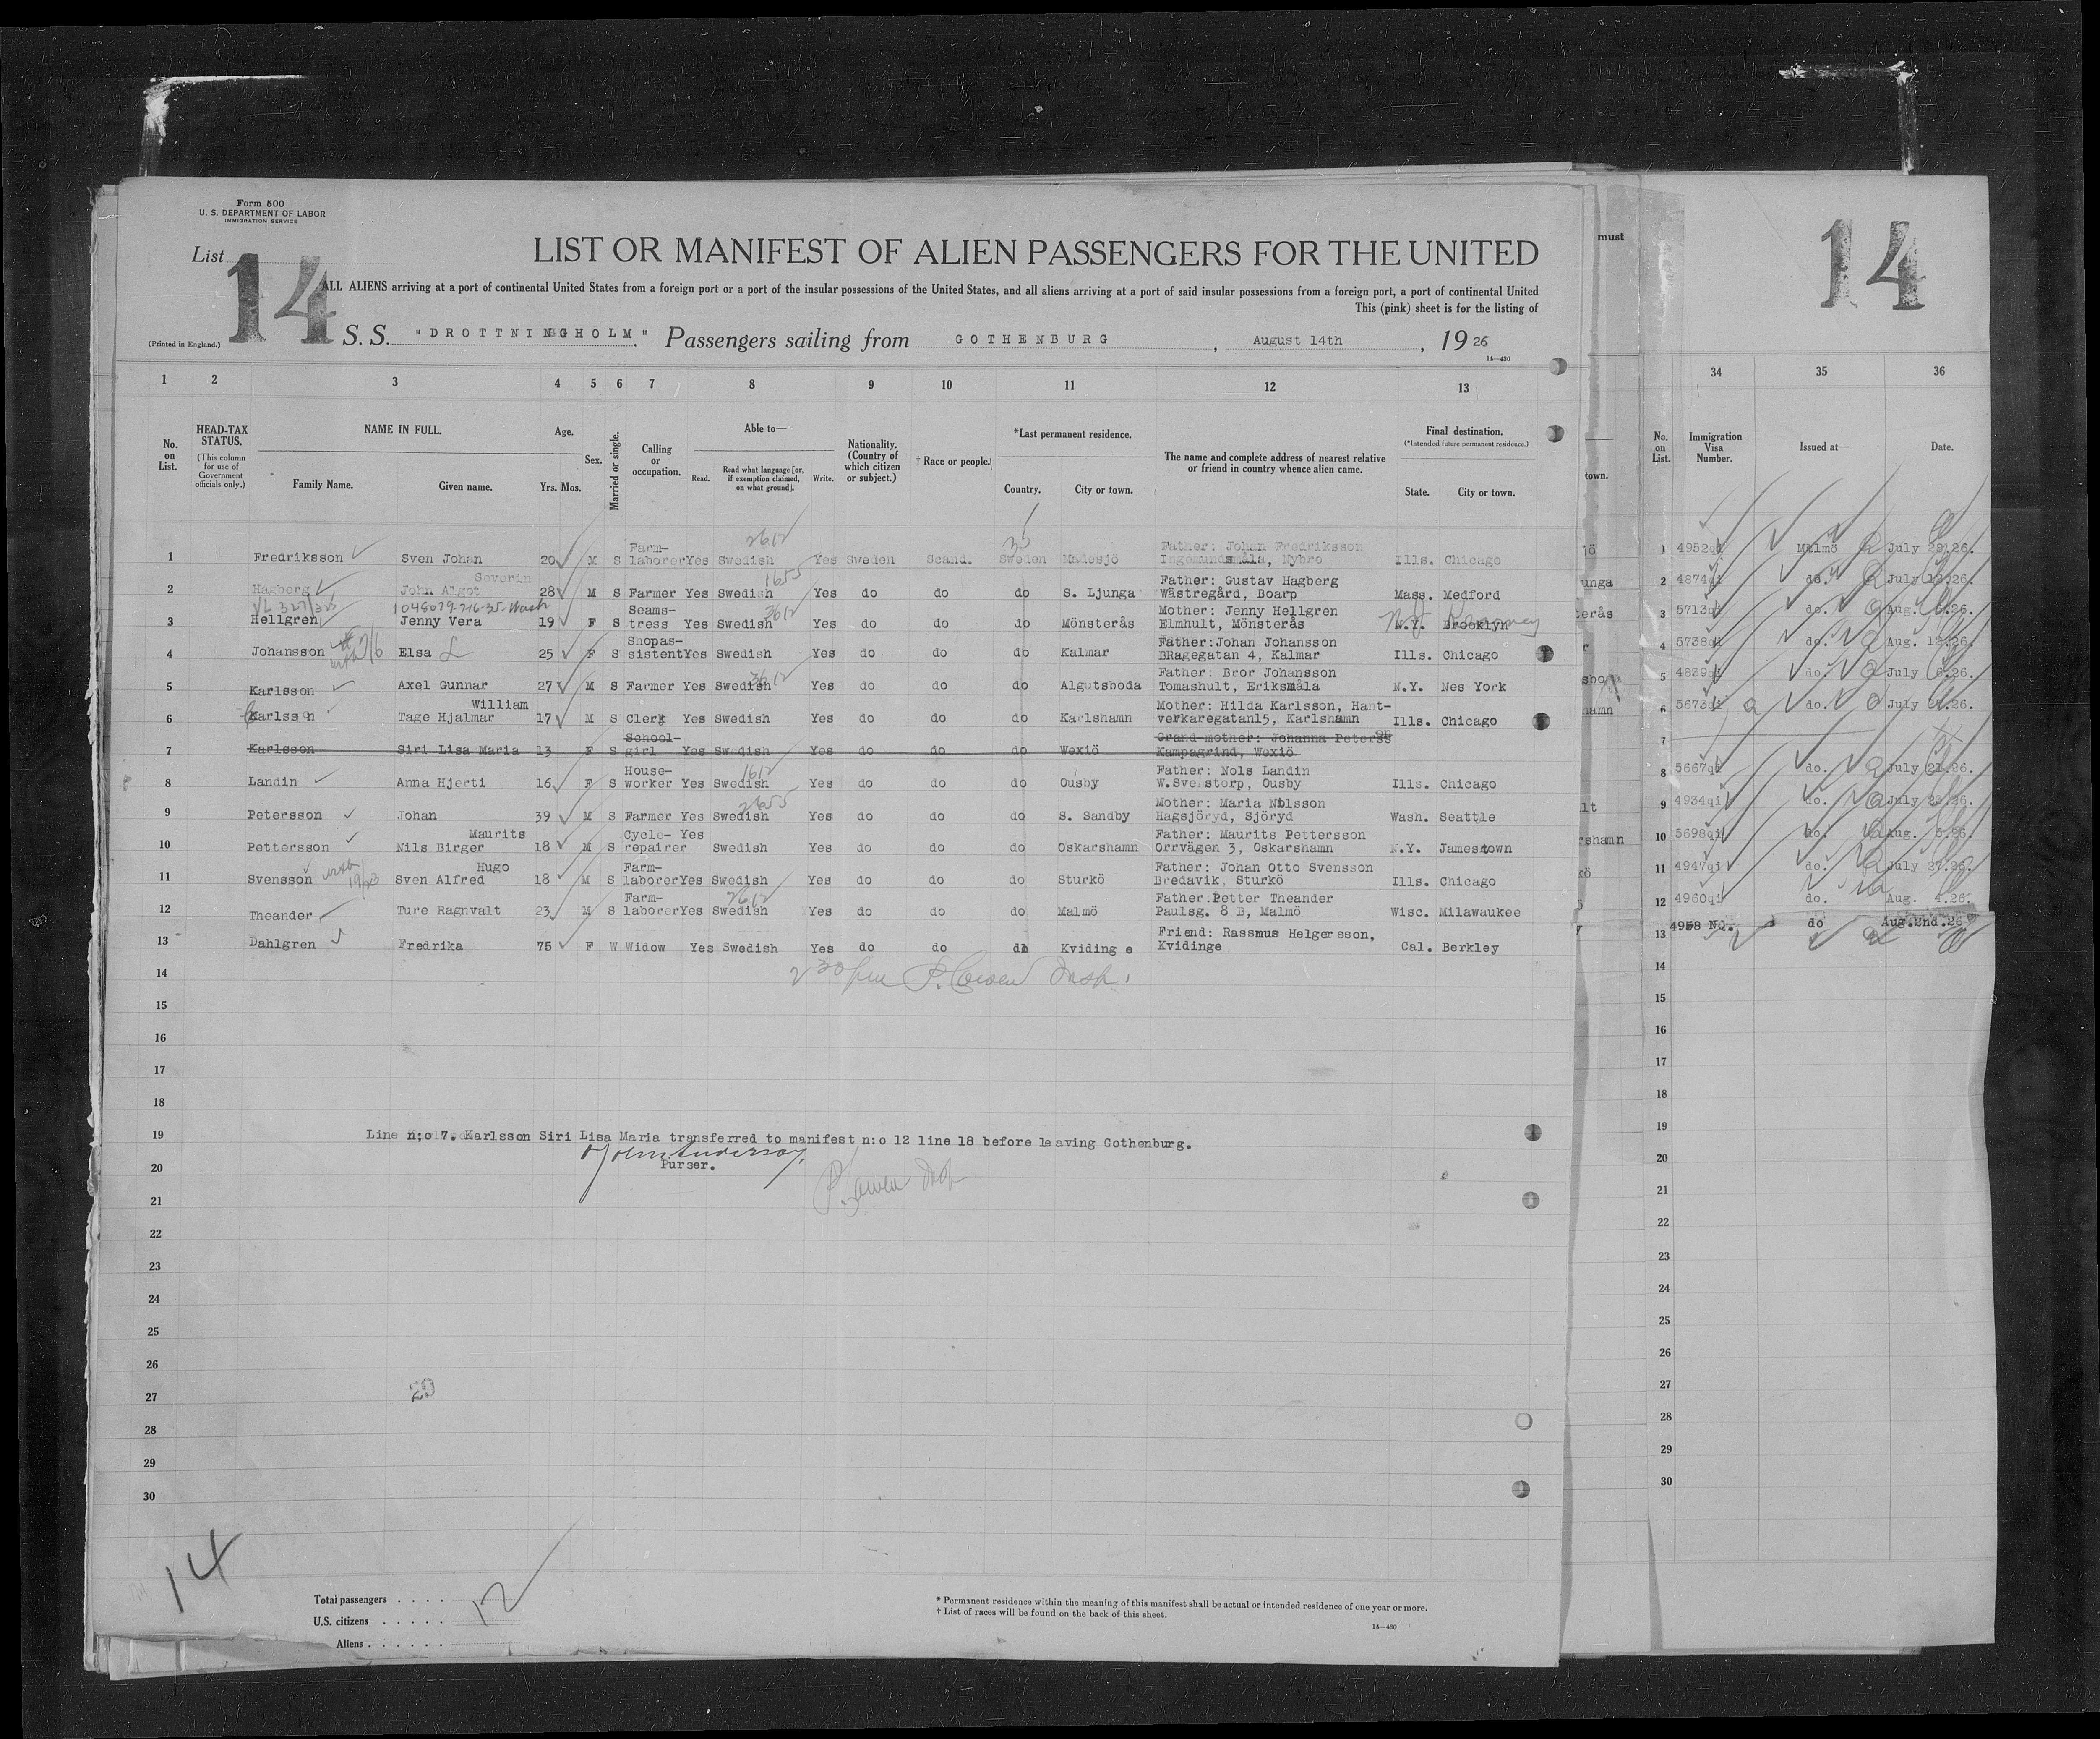 Form 500
U. S. DEPARTMENT OF LABOR
IMMIGRATION SERVICE
List 14
LIST OR MANIFEST OF ALIEN PASSENGERS FOR THE UNITED
ALL ALIENS arriving at a port of continental United States from a foreign port or a port of the insular possessions of the United States, and all aliens arriving at a port of said insular possessions from a foreign port, a port of continental United
This (pink) sheet is for the listing of
(Printed in England.) S. S. "DROTTNINGHOLM." Passengers sailing from GOTHENBURG, August 14th, 19 26
14—430
must
14
1 2 3 4 5 6 7 8 9 10 11 12 13 34 35 36
No. on List. HEAD-TAX STATUS. (This column for use of Government officials only.) NAME IN FULL. Family Name. Given name. Age. Yrs. Mos. Sex. Married or single. Calling or occupation. Able to— Read. Read what language [or, if exemption claimed, on what ground]. Write. Nationality. (Country of which citizen or subject.) † Race or people. *Last permanent residence. Country. City or town. The name and complete address of nearest relative or friend in country whence alien came. Final destination. (*Intended future permanent residence.) State. City or town.
town. No. on List. Immigration Visa Number. Issued at— Date.
2612
35
Farm- Father: Johan Fredriksson
1 Fredriksson Sven Johan 20 M S laborer Yes Swedish Yes Sweden Scand. Sweden Madesjö Ingemundsmåla, Nybro Ills. Chicago jö 1 4952qi Malmö July 29.26.
Severin 1655 Father: Gustav Hagberg
2 Hagberg John Algot 28 M S Farmer Yes Swedish Yes do do do S. Ljunga Wästregård, Boarp Mass. Medford unga 2 4874qi do. July 26.
1048079-716-35-Wash Seams- 3612 Mother: Jenny Hellgren
3 Hellgren Jenny Vera 19 F S tress Yes Swedish Yes do do do Mönsterås Elmhult, Mönsterås N.Y. Brooklyn terås 3 5713qi do. Aug. 26.
Shopas- Father:Johan Johansson
4 Johansson Elsa 25 F S sistent Yes Swedish Yes do do do Kalmar BRagegatan 4, Kalmar Ills. Chicago r 4 5738qi do. Aug. 26.
3612 Father: Bror Johansson
5 Karlsson Axel Gunnar 27 M S Farmer Yes Swedish Yes do do do Algutsboda Tomashult, Eriksmåla N.Y. Nes York 5 4839qi do. July 26.
William Mother: Hilda Karlsson, Hant-
6 Karlsson Tage Hjalmar 17 M S Clerk Yes Swedish Yes do do do Karlshamn verkaregatan15, Karlshamn Ills. Chicago hamn 6 5673qi do. July 26.
School- Grand-mother: Johanna Peterss on
7 Karlsson Siri Lisa Maria 13 F S girl Yes Swedish Yes do do do Wexiö Kampagrind, Wexiö 7
House- 1612 Father: Nols Landin
8 Landin Anna Hjerti 16 F S worker Yes Swedish Yes do do do Ousby W.Svenstorp, Ousby Ills. Chicago 8 5667qi do. July 21.26.
2655 Mother: Maria Nilsson
9 Petersson Johan 39 M S Farmer Yes Swedish Yes do do do S. Sandby Hagsjöryd, Sjöryd Wash. Seattle lt 9 4934qi do. July 26.
Maurits Cycle- Yes Father: Maurits Pettersson
10 Pettersson Nils Birger 18 M S repairer Swedish Yes do do do Oskarshamn Orrvägen 3, Oskarshamn N.Y. Jamestown rshamn 10 5698qi do. Aug. 5.26.
Hugo Farm- Father: Johan Otto Svensson
11 Svensson Sven Alfred 18 M S laborer Yes Swedish Yes do do do Sturkö Bredavik, Sturkö Ills. Chicago kö 11 4947qi do. July 27.26.
Farm- 2612 Father:Petter Theander
12 Theander Ture Ragnvalt 23 M S laborer Yes Swedish Yes do do do Malmö Paulsg. 8 B, Malmö Wisc. Milawaukee 12 4960qi do. Aug. 4.26.
Friend: Rassmus Helgersson,
13 Dahlgren Fredrika 75 F W Widow Yes Swedish Yes do do do Kvidinge Kvidinge Cal. Berkley 13 4958 NQ. do Aug.2nd.26
14 14
15 15
16 16
17 17
18 18
19 Line n:o 7. Karlsson Siri Lisa Maria transferred to manifest n:o 12 line 18 before leaving Gothenburg. 19
20 Purser. 20
21 21
22 22
23 23
24 24
25 25
26 26
27 29 27
28 28
29 29
30 30
14
Total passengers . . . . 12
U.S. citizens . . . . .
Aliens . . . . . .
* Permanent residence within the meaning of this manifest shall be actual or intended residence of one year or more.
† List of races will be found on the back of this sheet.
14—430